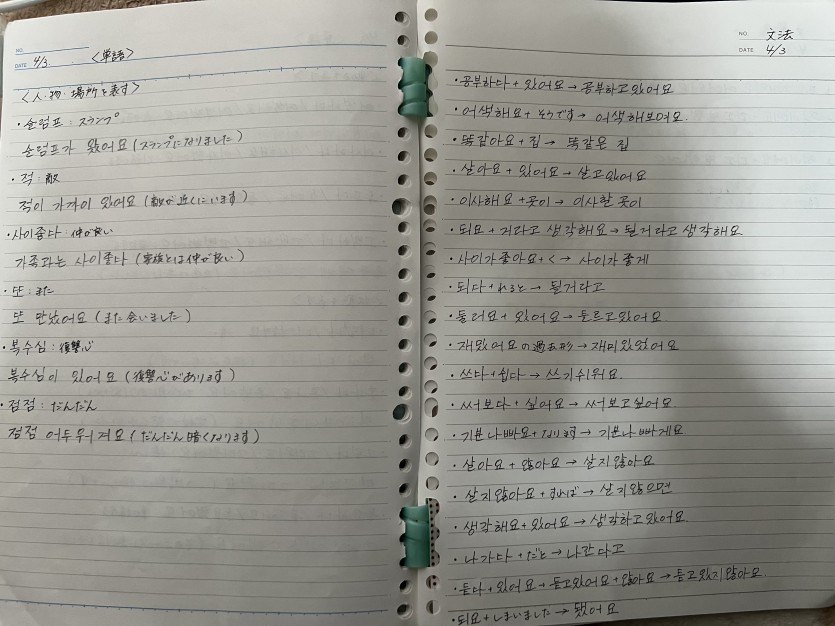 NO.
DATE 4/3 〈単語〉
〈人・物・場所を表す〉
・슬럼프 : スランプ
슬럼프가 왔어요 (スランプになりました)
・적 : 敵
적이 가까이 있어요 (敵が近くにいます)
・사이좋다 : 仲が良い
가족과는 사이좋다 (家族とは仲が良い)
・또 : また
또 만났어요 (また会いました)
・복수심 : 復讐心
복수심이 있어요 (復讐心があります)
・점점 : だんだん
점점 어두워져요 (だんだん暗くなります)
NO. 文法
DATE 4/3
・공부하다 + 있어요 → 공부하고있어요
・어색해요 + そうです → 어색해보여요.
・똑같아요 + 집 → 똑같은 집
・살아요 + 있어요 → 살고있어요
・이사해요 + 곳이 → 이사할 곳이
・되요 + 거라고 생각해요 → 될거라고 생각해요
・사이가좋아요 + く → 사이가 좋게
・되다 + れると → 될거라고
・들러요 + 있어요 → 들르고있어요.
・재밌어요の過去形 → 재미있었어요
・쓰다 + 쉽다 → 쓰기쉬워요.
・써보다 + 싶어요 → 써보고싶어요.
・기분나빠요 + なります → 기분나빠게요
・살아요 + 않아요 → 살지않아요
・살지않아요 + すれば → 살지않으면
・생각해요 + 있어요 → 생각하고있어요.
・나가다 + だと → 나간다고
・듣다 + 있어요 + 듣고있어요 + 않아요 → 듣고있지않아요.
・되요 + しまいました → 됐어요